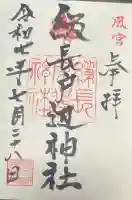 風宮
奉拝
級長戸辺神社
令和七年七月二十八日